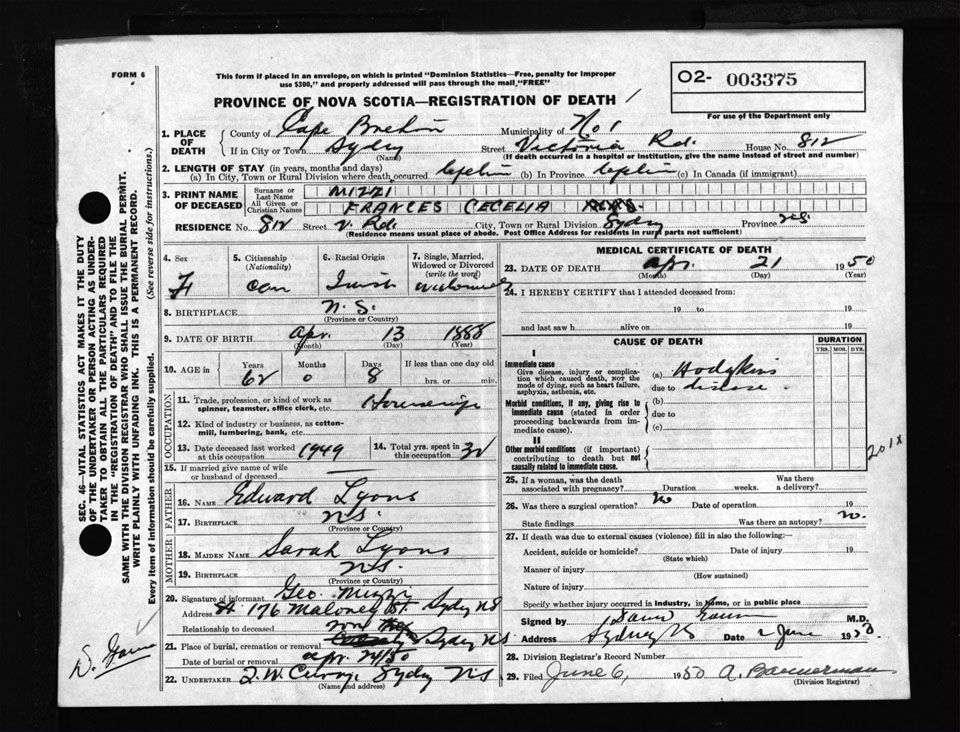 FORM 6
This form if placed in an envelope, on which is printed "Dominion Statistics—Free, penalty for improper
use $300," and properly addressed will pass through the mail "FREE"
O2- 003375
For use of the Department only
PROVINCE OF NOVA SCOTIA—REGISTRATION OF DEATH
1. PLACE OF DEATH
County of Cape Breton Municipality of No 1
If in City or Town Sydney (Name) Street Victoria Rd. House No. 812
(If death occurred in a hospital or institution, give the name instead of street and number)
2. LENGTH OF STAY (in years, months and days)
(a) In City, Town or Rural Division where death occurred (b) In Province (c) In Canada (if immigrant)
3. PRINT NAME OF DECEASED
Surname or Last Name MIZZI
All Given or Christian Names FRANCES CECELIA
RESIDENCE No. 812 Street V. Rd. City, Town or Rural Division Sydney Province N.S.
(Residence means usual place of abode. Post Office Address for residents in rural parts not sufficient)
4. Sex F
5. Citizenship (Nationality) Can
6. Racial Origin Irish
7. Single, Married, Widowed or Divorced (write the word) Widowed
8. BIRTHPLACE N.S.
(Province or Country)
9. DATE OF BIRTH Apr. 13 1888
(Month) (Day) (Year)
10. AGE in Years 62 Months 0 Days 8 If less than one day old hrs. or min.
OCCUPATION
11. Trade, profession, or kind of work as spinner, teamster, office clerk, etc. Housewife
12. Kind of industry or business, as cotton-mill, lumbering, bank, etc.
13. Date deceased last worked at this occupation 1949
14. Total yrs. spent in this occupation 32
15. If married give name of wife or husband of deceased
FATHER
16. NAME Edward Lyons
17. BIRTHPLACE N.S.
(Province or Country)
MOTHER
18. MAIDEN NAME Sarah Lyons
19. BIRTHPLACE N.S.
(Province or Country)
20. Signature of informant Geo. Mizzi
Address 176 Maloney St. Sydney NS
Relationship to deceased son
21. Place of burial, cremation or removal Sydney NS
Date of burial or removal Apr. 24/50
22. UNDERTAKER Sydney N.S.
(Name and address)
MEDICAL CERTIFICATE OF DEATH
23. DATE OF DEATH Apr. 21 1950
(Month) (Day) (Year)
24. I HEREBY CERTIFY that I attended deceased from:
19 to 19
and last saw h alive on 19
CAUSE OF DEATH
DURATION
YRS. MOS. DYS.
I
Immediate cause
Give disease, injury or complication which caused death, NOT the mode of dying, such as heart failure, asphyxia, asthenia, etc.
(a) Hodgkins
due to disease
Morbid conditions, if any, giving rise to immediate cause (stated in order proceeding backwards from immediate cause).
(b)
due to
(c)
II
Other morbid conditions (if important) contributing to death but not causally related to immediate cause.
201X
25. If a woman, was the death associated with pregnancy? Duration weeks. Was there a delivery?
26. Was there a surgical operation? No Date of operation 19
State findings Was there an autopsy? No.
27. If death was due to external causes (violence) fill in also the following:—
Accident, suicide or homicide? Date of injury 19
(State which)
Manner of injury
(How sustained)
Nature of injury
Specify whether injury occurred in industry, in home, or in public place
Signed by M.D.
Address Sydney NS Date 2 June 1950.
28. Division Registrar's Record Number
29. Filed June 6, 1950 A. Bannerman
(Division Registrar)
SEC. 46—VITAL STATISTICS ACT MAKES IT THE DUTY
OF THE UNDERTAKER OR PERSON ACTING AS UNDER-
TAKER TO OBTAIN ALL THE PARTICULARS REQUIRED
IN THE "REGISTRATION OF DEATH" AND TO FILE THE
SAME WITH THE DIVISION REGISTRAR WHO SHALL ISSUE THE BURIAL PERMIT.
WRITE PLAINLY WITH UNFADING INK. THIS IS A PERMANENT RECORD.
Every item of information should be carefully supplied. (See reverse side for instructions.)